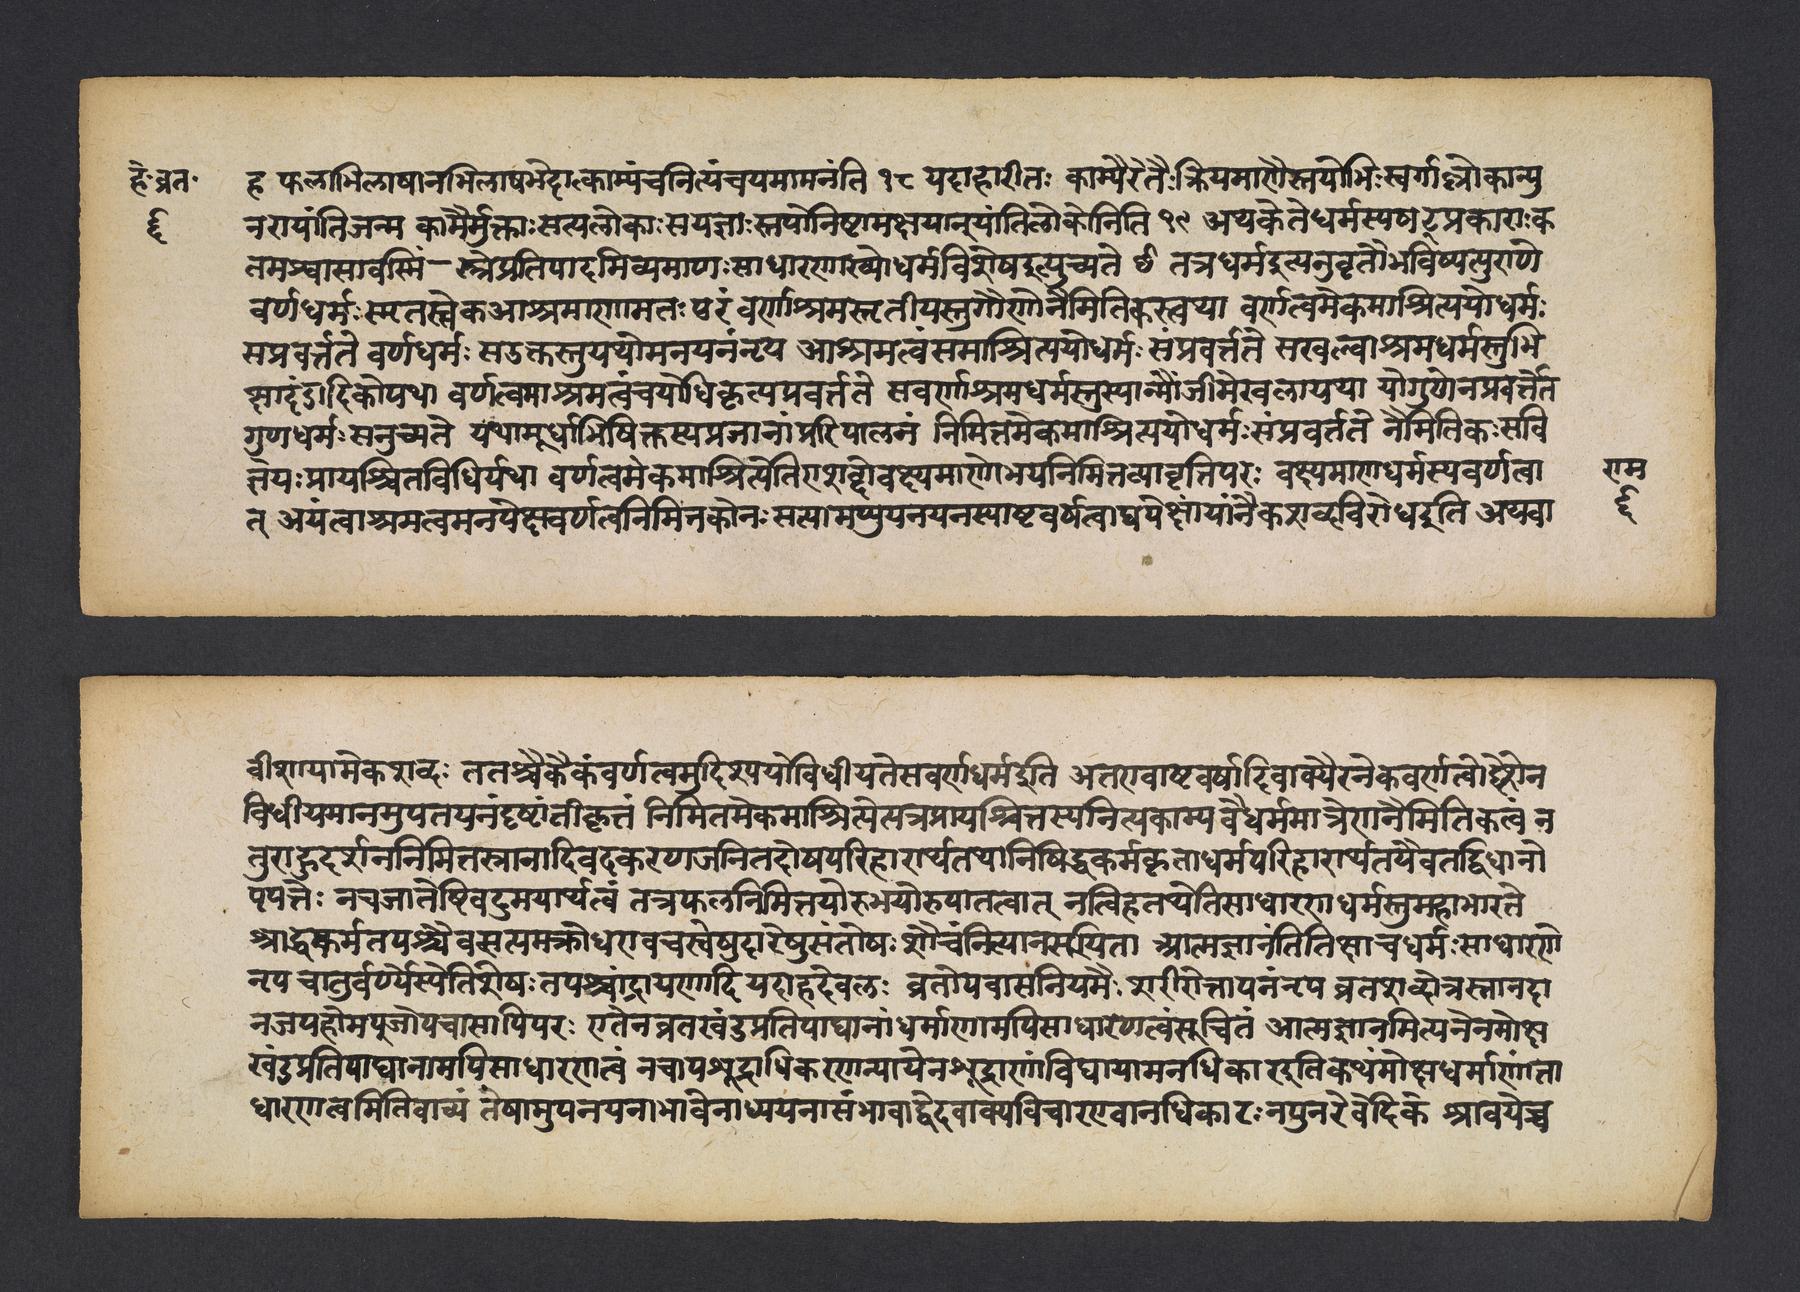 हे॰व्रत॰
६
ह फलाभिलाषानभिलाषभेदात्काम्यंचनित्यंचयमामनंति १८ यदाहारीतः काम्यैरेतैःक्रियमाणैस्तयोभिःस्वर्गाल्लोकान्पु
नरायांतिजन्म कामैर्मुक्ताःसत्यलोकाःसयज्ञाःस्तपोनिष्टामक्षयानुयांतिलोकेनिति १९ अथकेतेधर्मस्यषट्प्रकाराःक
तमश्चासावस्मिं-स्त्रेप्रतिपादमिव्यमाणःसाधारणाख्योधर्मविशेषइत्युच्यते छ तत्रधर्मइत्यनुवृतौभविष्यत्पुराणे
वर्णधर्मःस्मृतस्त्वेकआश्रमाणामतःपरं वर्णाश्रमस्तृतीयस्तुगौणोनैमितिकस्तथा वर्णत्वमेकमाश्रित्ययोधर्मः
सप्रवर्त्तते वर्णधर्मः सउक्तस्तुययोमनयनंनृप आश्रामत्वंसमाश्रित्ययोधर्मः संप्रवर्त्तते सखल्वाश्रमधर्मस्तुभि
क्षादंडादिकोपथा वर्णत्वमाश्रमत्वंचयोधिकृत्यप्रवर्त्तते सवर्णाश्रमधर्मस्तुस्यान्मौंजीमेखलायया योगुणेनप्रवर्त्तेत
गुणधर्मःसनुच्यते यथामूर्धाभिषिक्तस्यप्रजानांप्ररिपालनं निमित्तमेकमाश्रित्ययोधर्मःसंप्रवर्तते नैमितिकःसवि
ज्ञेयःप्रायश्चितविधिर्यथा वर्णत्वमेकमाश्रित्येतिएशब्दोवक्ष्यमाणोभयनिमित्तव्यावृत्तिपरः वक्ष्यमाणधर्मस्यवर्णत्वा
त् अयंत्वाश्रमत्वमनपेक्ष्यवर्णत्वनिमित्तकोनःसत्यामप्युपनयनस्याष्टवर्षत्वाद्यपेक्षांयांनैकशब्दविरोधइति अथवा
राम
६
वीप्सायामेकशब्दः ततश्चैकैकंवर्णत्वमुदिश्ययोविधीयतेसवर्णधर्मइति अतएवाष्टवर्षादिवाक्यैरनेकवर्णत्वोद्देशेन
विधीयमानमुपतयनंदृष्टांतीकृत्तं निमितमेकमाश्रित्येत्यत्रप्रायश्चित्तस्यनित्यकाम्यवैधर्ममात्रेणनैमितिकत्वं न
तुराहुदर्शननिमित्तस्नानादिवदकरणजनितदोषपरिहारार्थतथानिषिद्धकर्मकृताधर्मपरिहारार्थतयैवतद्विधानो
पपत्तेः नचजातेष्टिवदुमयार्थत्वं तत्रफलनिमित्तयोरुभयोरुपातत्वात् नत्विहतथेतिसाधारणधर्मस्तुमहाभारते
श्राद्धकर्मतपश्चैवसत्यमक्रोधएवचस्वेषुदारेषुसंतोषःशौचंनित्यानसूयिता आत्मज्ञानंतितिक्षाचधर्मःसाधारणो
नृप चातुर्वर्ण्यस्येतिशेषःतपश्चांद्रायणादि यदाहदेवलः व्रतोपवासनियमैःशरीरोत्तापनंनृप व्रतशब्दोत्रस्नानदा
नजपहोमपुजोपचासापिपरः एतेनव्रतखंडप्रतिपाद्यानांधर्माणामपिसाधारणत्वंसूचितं आत्मज्ञानमित्यनेनमोक्ष
खंडप्रतिपाद्यानामपिसाधारणत्वं नचापशूद्राधिकरणन्यायेनशूद्राणांविद्यायामनधिकारइतिकथंमोक्षधर्माणांता
धारणत्वमितिवाच्यं तेषामुपनयनाभावेनाध्ययनासंभावाद्वेदवाक्यविचारएवानधिकारःनपुनरेवेदिके श्रावयेच्च